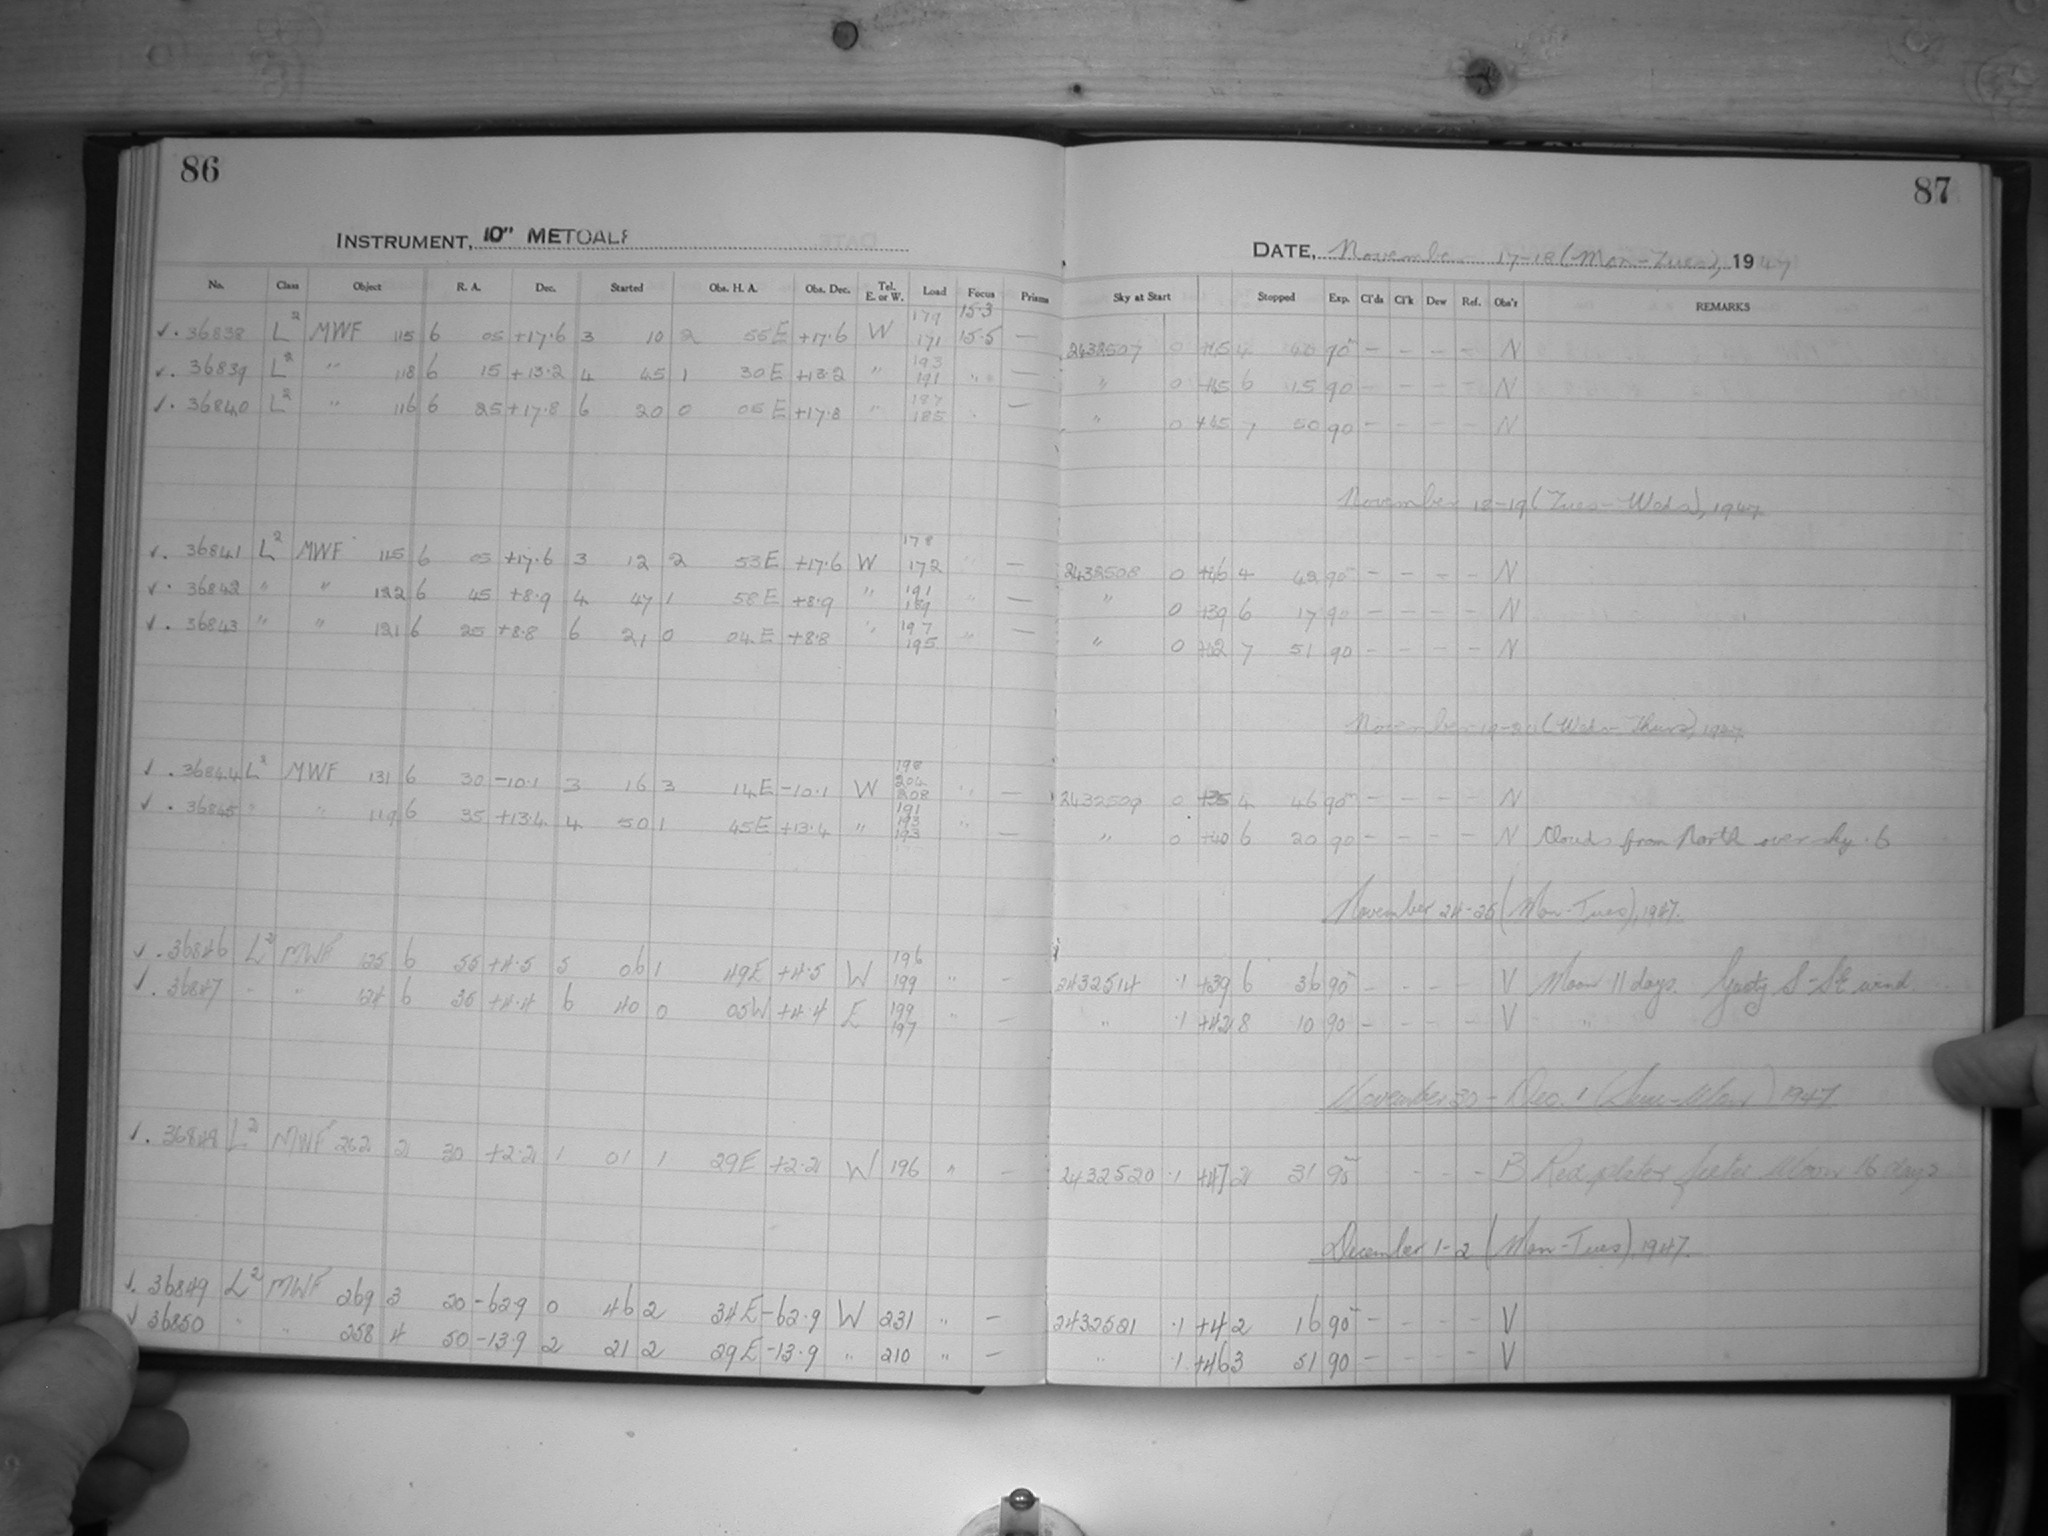 86
87
INSTRUMENT, 10" METCALF
DATE, November 17-18 (Mon-Tues), 1947
No. Class Object R. A. Dec. Started Obs. H. A. Obs. Dec. Tel. E. or W. Load Focus Prisms Sky at Start Stopped Exp. Cl'ds Cl'k Dew Ref. Obs'r REMARKS
✓. 36838 L2 MWF 115 6 05 +17.6 3 10 2 55 E +17.6 W 179 171 15.3 15.5 — 2432507 0 +45 4 40 90m - - - - N
✓. 36839 L2 " 118 6 15 +13.2 4 45 1 30 E +13.2 " 193 191 " — " 0 +45 6 15 90 - - - - N
✓. 36840 L2 " 116 6 25 +17.8 6 20 0 05 E +17.8 " 187 185 " — " 0 +45 7 50 90 - - - - N
November 18-19 (Tues-Weds), 1947
✓. 36841 L2 MWF 115 6 05 +17.6 3 12 2 53 E +17.6 W 178 172 " — 2432508 0 +46 4 42 90m - - - - N
✓. 36842 " " 122 6 45 +8.9 4 47 1 58 E +8.9 " 191 189 " — " 0 +39 6 17 90 - - - - N
✓. 36843 " " 121 6 25 +8.8 6 21 0 04 E +8.8 " 197 195 " — " 0 +42 7 51 90 - - - - N
November 19-20 (Weds-Thurs), 1947
✓. 36844 L2 MWF 131 6 30 -10.1 3 16 3 14 E -10.1 W 198 204 208 " — 2432509 0 +35 4 46 90m - - - - N
✓. 36845 " " 119 6 35 +13.4 4 50 1 45 E +13.4 " 191 193 193 " — " 0 +40 6 20 90 - - - - N Clouds from North over sky .6
November 24-25 (Mon-Tues), 1947.
✓. 36846 L2 MWF 125 6 55 +4.5 5 06 1 49 E +4.5 W 196 199 " — 2432514 .1 +39 6 36 90m - - - - V Moon 11 days. Gusty S-SE wind
✓. 36847 " " 124 6 35 +4.4 6 40 0 05 W +4.4 E 199 197 " — " .1 +42 8 10 90 - - - - V "
November 30 - Dec. 1 (Sun-Mon) 1947.
✓. 36848 L2 MWF 262 2 30 +2.2 1 01 1 29 E +2.2 W 196 " — 2432520 .1 +47 2 31 90m - - - B Red plate filter Moon 16 days
December 1-2 (Mon-Tues), 1947.
✓. 36849 L2 MWF 269 3 20 -62.9 0 46 2 34 E -62.9 W 231 " — 2432521 .1 +4 2 16 90m - - - - V
✓ 36850 " " 258 4 50 -13.9 2 21 2 29 E -13.9 " 210 " — " .1 +46 3 51 90 - - - - V